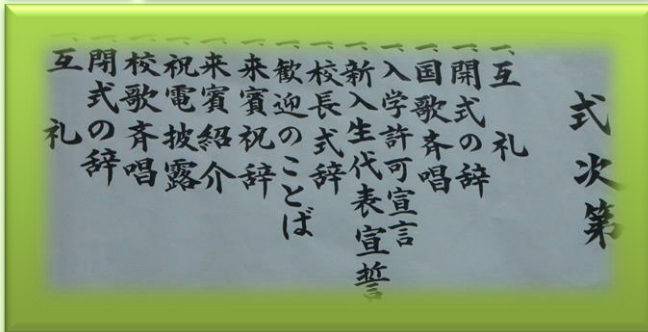 式次第
一、互礼
一、開式の辞
一、国歌斉唱
一、入学許可宣言
一、新入生代表宣誓
一、校長式辞
一、歓迎のことば
一、来賓祝辞
一、来賓紹介
一、祝電披露
一、校歌斉唱
一、閉式の辞
一、互礼